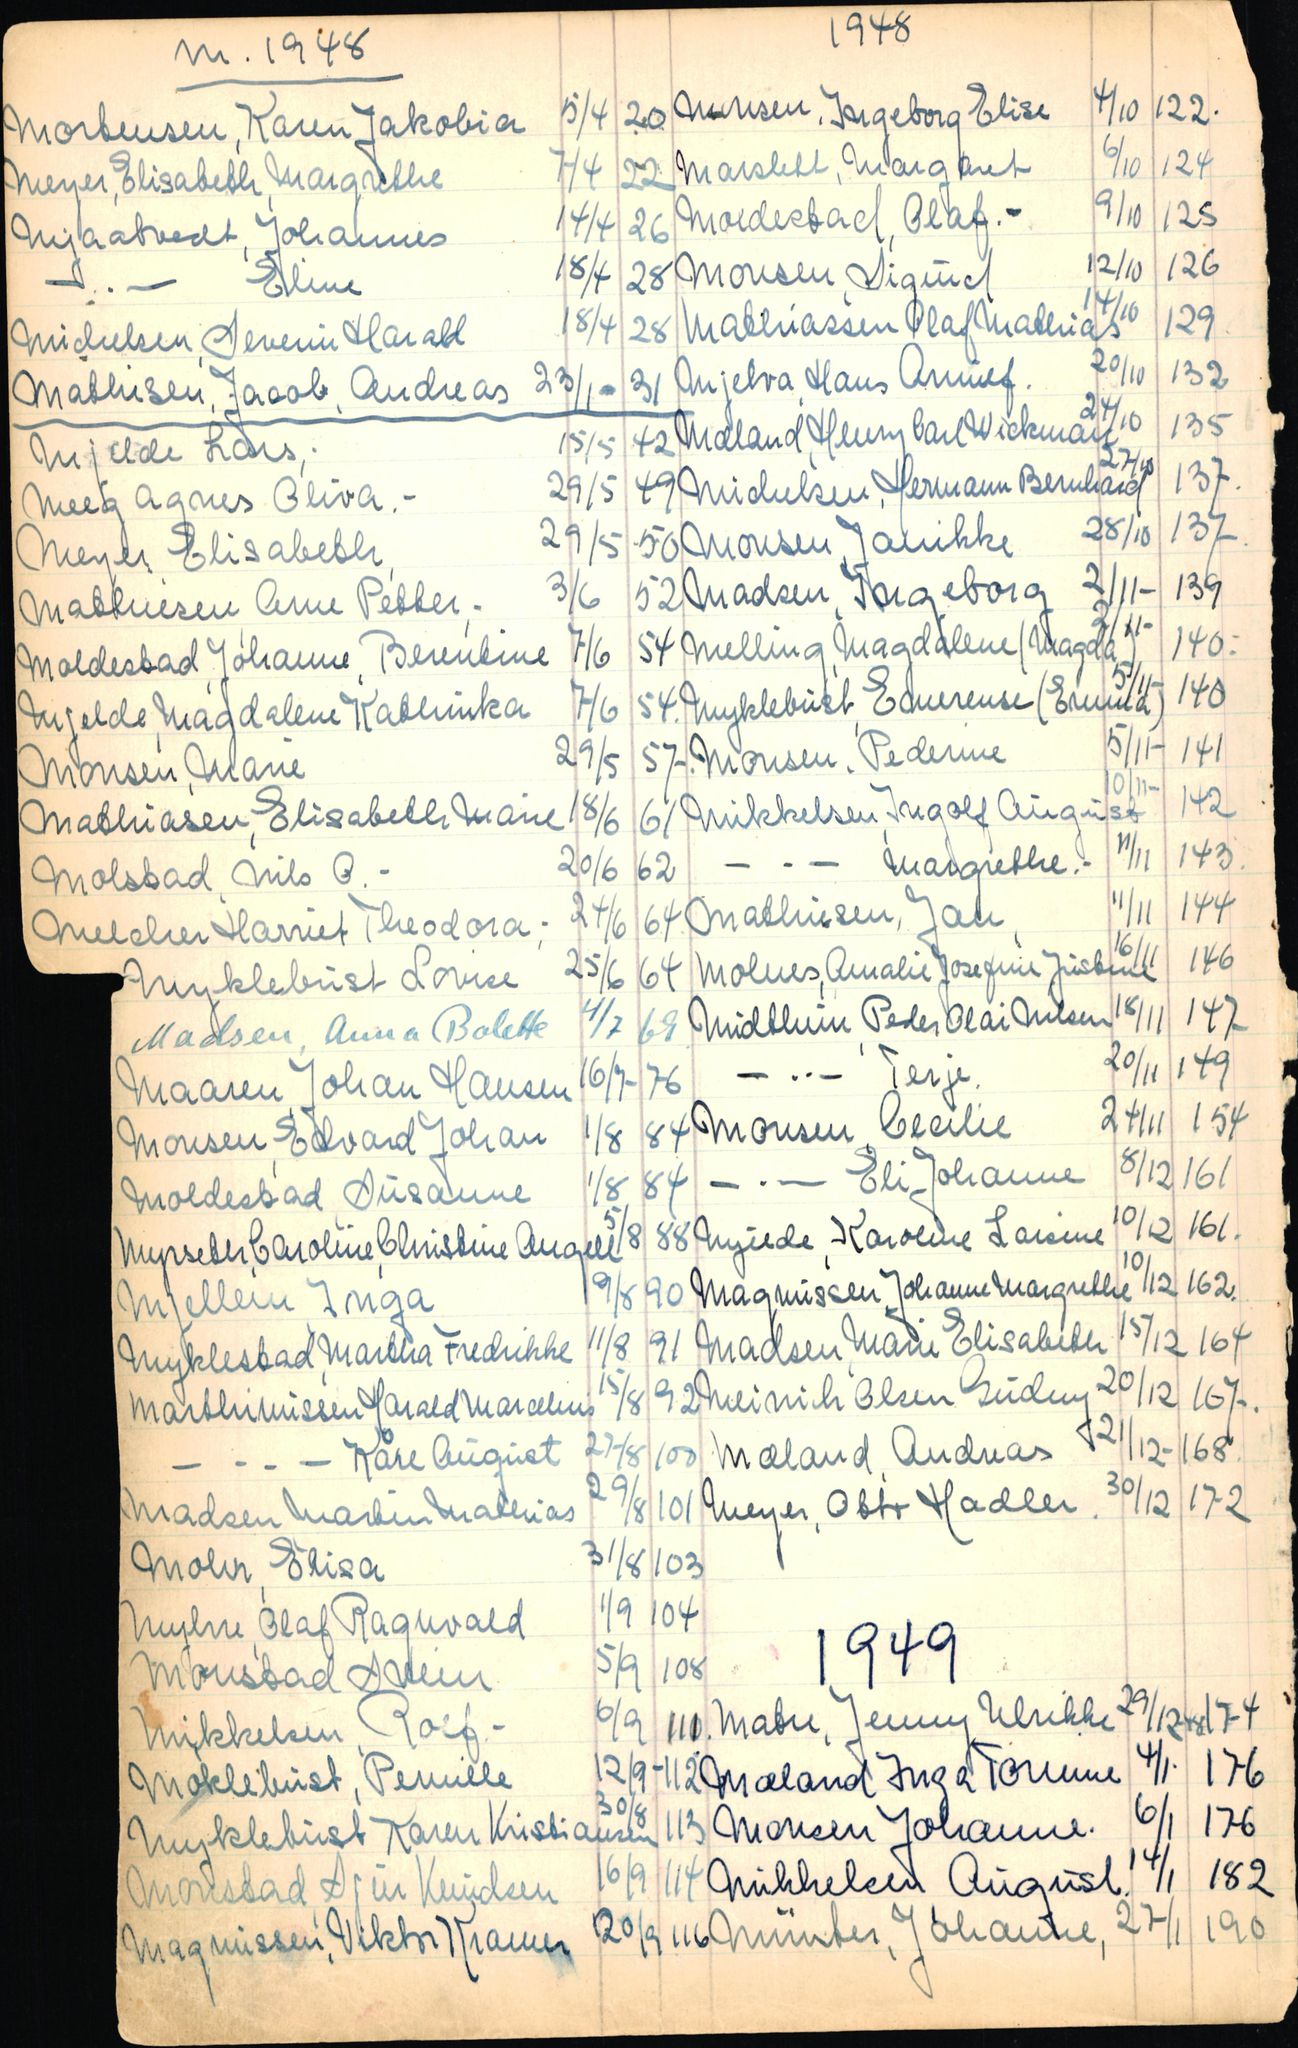 M. 1948
Mortensen, Karen Jakobia 5/4 20
Meyer, Elisabeth Margrethe 7/4 22
Mjaatvedt, Johannes 14/4 26
— " — Eline 18/4 28
Michelsen, Severin Harald 18/4 28
Mathisen, Jacob, Andreas 23/1 - 31
Mjelde Lars, 15/5 42
Meeg Agnes Oliva.- 29/5 49
Meyer Elisabeth, 29/5 50
Mathiesen Arne Petter,- 3/6 52
Moldestad, Johanne, Berentine 7/6 54
Mjelde, Magdalene Kathinka 7/6 54.
Monsen, Marie 29/5 57-
Mathiasen, Elisabeth Marie 18/6 61
Molstad, Nils O.- 20/6 62
Melcher Harriet Theodora,- 24/6 64
Myklebust Lovise 25/6 64
Madsen, Anna Bolette 4/7 69
Maaren, Johan Hansen 16/7- 76
Monsen, Edvard Johan 1/8 84
Moldestad, Susanne 1/8 84
Myrseter, Caroline, Christine Angell 5/8 88
Mjellem, Inga 9/8 90
Myklestad, Martha Fredrikke 11/8 91
Marthinussen Harald Marcelius 15/8 92
— - - — Kåre August 27/8 100
Madsen Martin Mathias 29/8 101
Mohr, Elisa 31/8 103
Myhre, Olaf Ragnvald 1/9 104
Monstad Svein 5/9 108
Mikkelsen, Rolf.- 6/9 110.
Moklebust, Pernille 12/9- 112
Myklebust Karen Kristiansen 30/8 113
Monstad, Sjur Knudsen 16/9 114
Magnussen, Viktor Kramer 20/9 116
1948
Monsen, Ingeborg Elise 4/10 122.
Marstett, Margaret 6/10 124
Moldestad, Olaf.- 9/10 125
Monsen, Sigurd 12/10 126
Mathiassen Olaf Mathias 14/10 129
Mjelva, Hans Annief. 20/10 132
Mæland, Henry Carl Wickman 24/10 135
Michelsen, Hermann Bernhard 27/10 137.
Monsen, Janikke 28/10 137
Madsen, Ingeborg 2/11- 139
Melling, Magdalene (Magda) 2/11- 140.-
Myklebust, Emerense (Emma) 5/11- 140
Monsen, Pederine 5/11- 141
Mikkelsen, Ingolf August 10/11- 142
— - - — Margrethe.- 11/11 143.
Mathiesen, Jan, 11/11 144
Molnes, Amalie Josefine Justine 16/11 146
Midtun, Peder Olai Nilsen 18/11 147
— " — Terje. 20/11 149
Monsen, Cecilie 24/11 154
— " — Eli Johanne 8/12 161
Mjelde, Karoline Larsine 10/12 161.
Magnussen Johanne Margrethe 10/12 162.
Madsen, Marie Elisabeth 15/12 164
Meinich Olsen Gudny 20/12 167.
Mæland, Andreas 21/12- 168.
Meyer, Otto Hadler. 30/12 172
1949
Matre, Jenny Ulrikke 29/12-48 174
Mæland Inga Tomine 4/1. 176
Monsen Johanne. 6/1 176
Mikkelsen August. 14/1 182
Münter, Johanne, 27/1 190